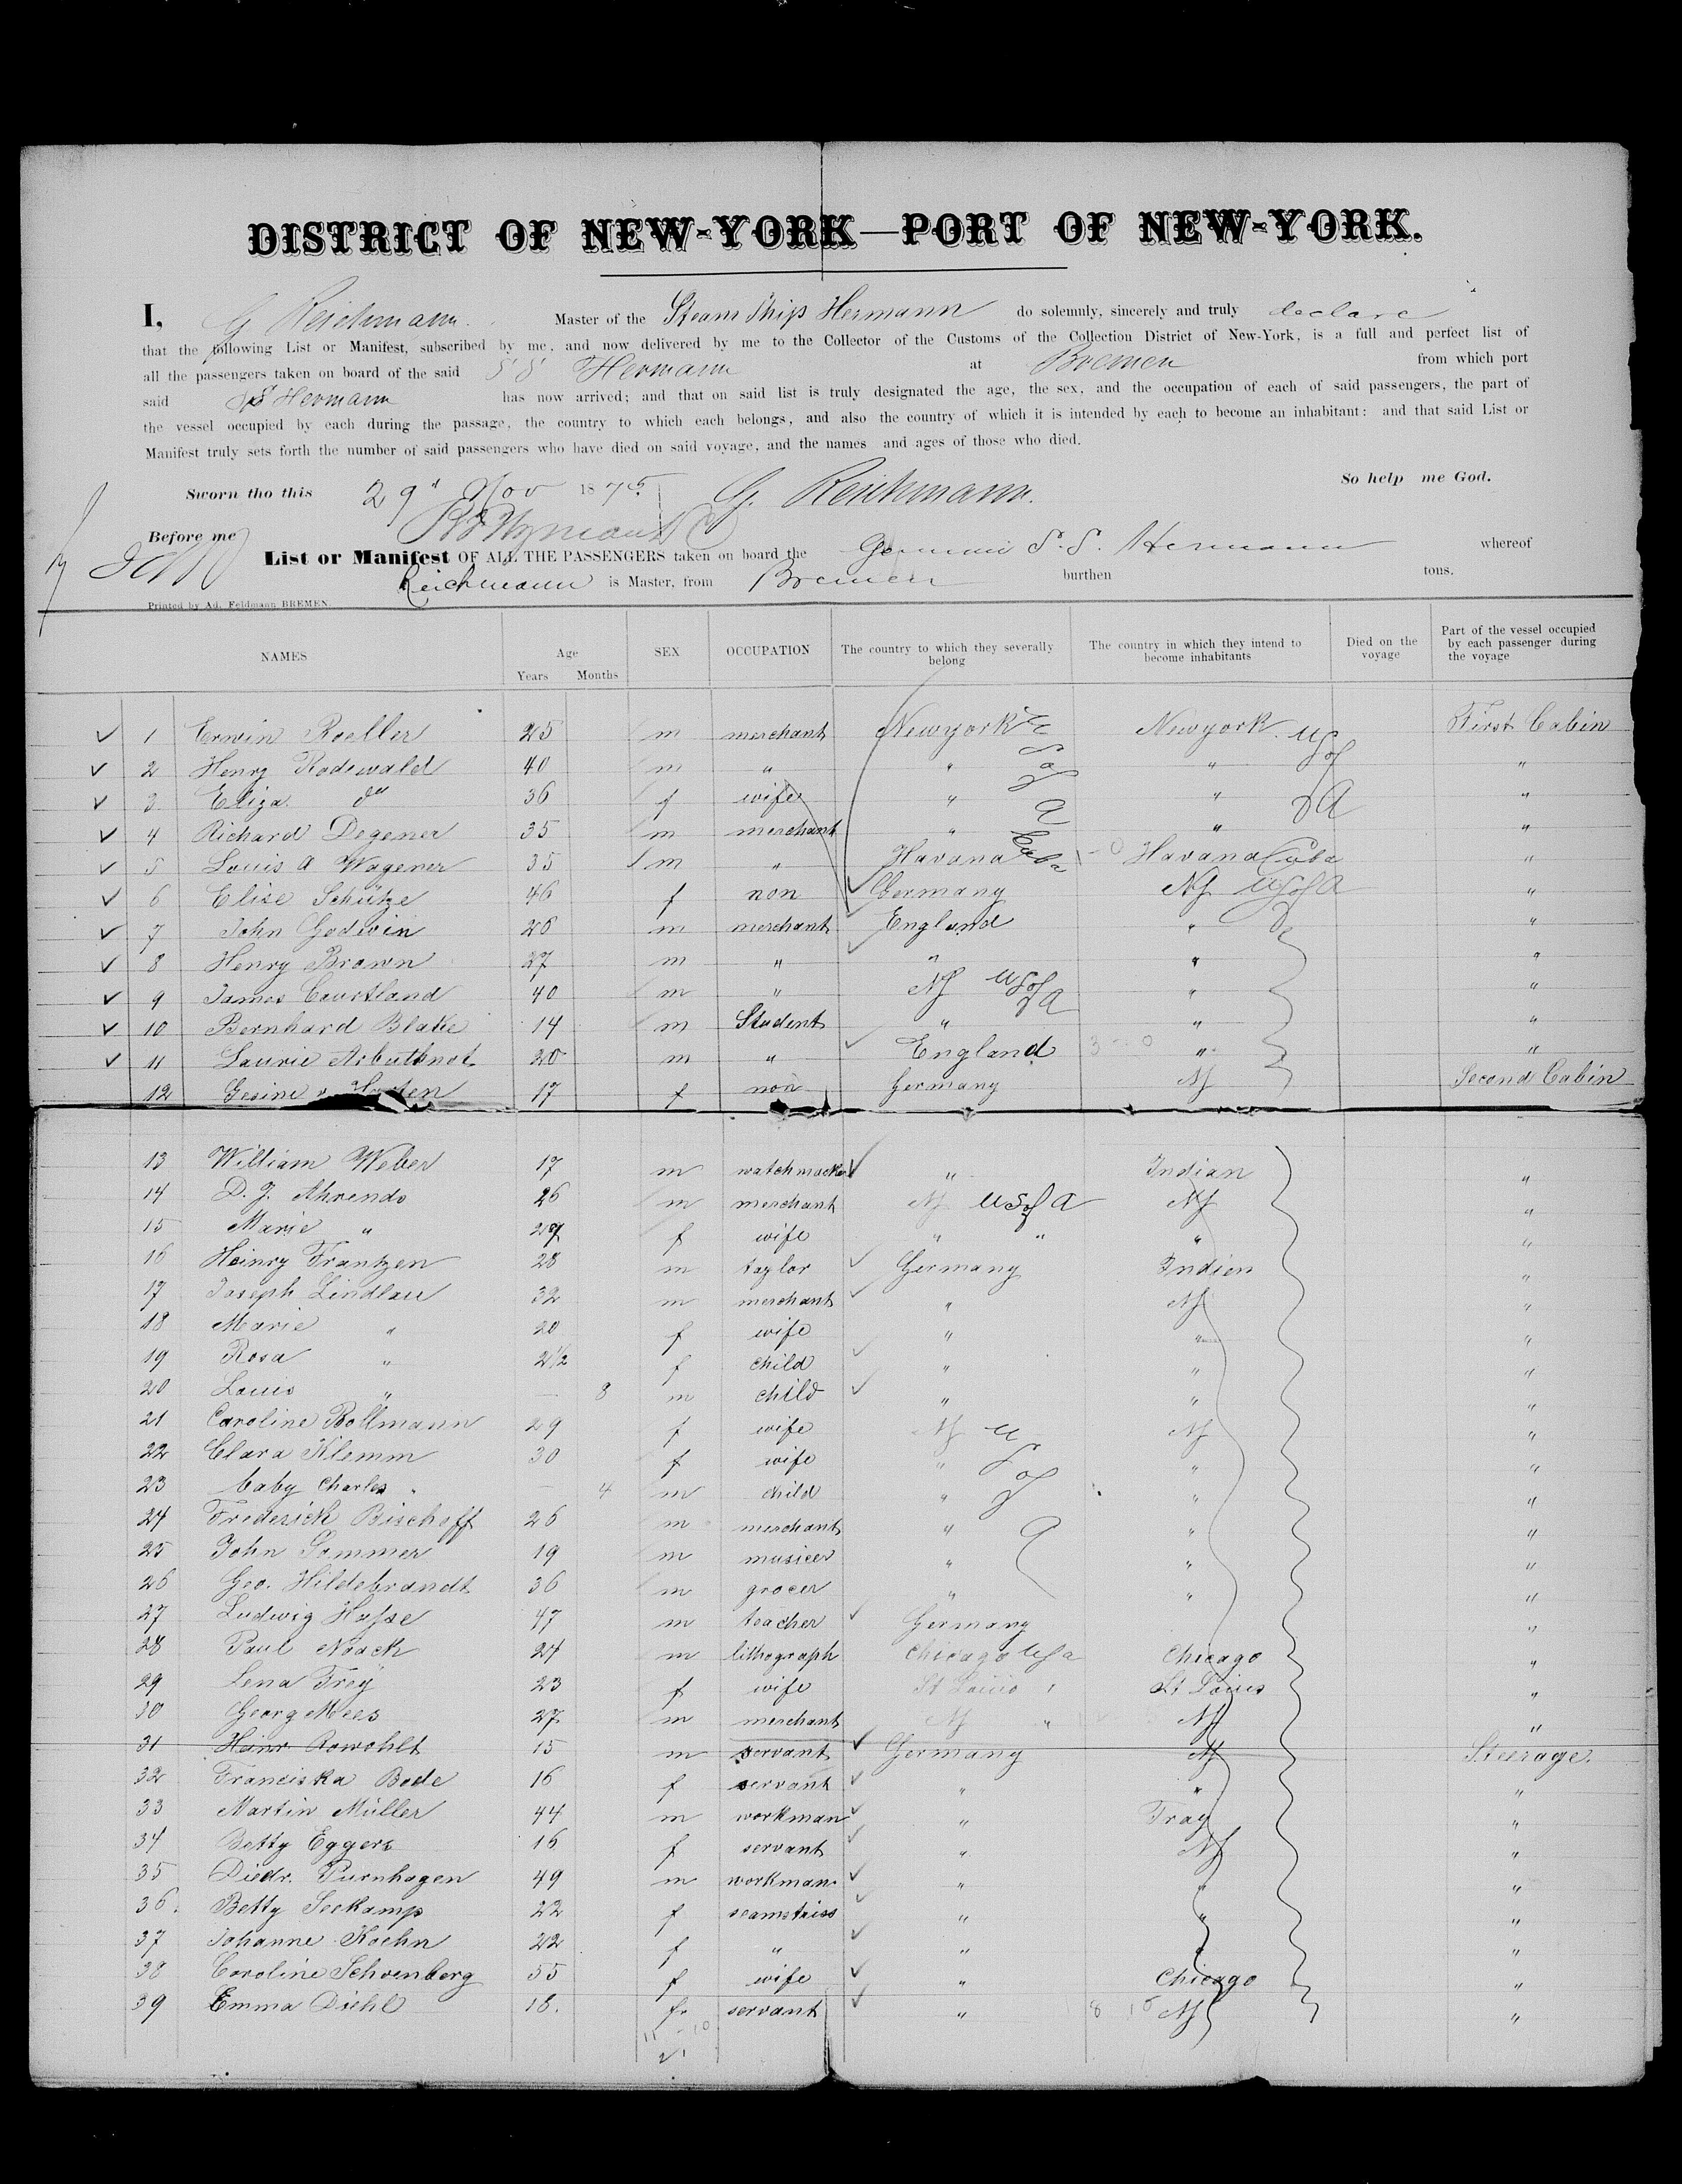 DISTRICT OF NEW-YORK—PORT OF NEW-YORK.
I, G Reichmann. Master of the Steam Ship Hermann do solemnly, sincerely and truly declare
that the following List or Manifest, subscribed by me, and now delivered by me to the Collector of the Customs of the Collection District of New-York, is a full and perfect list of
all the passengers taken on board of the said S S Hermann at Bremen from which port
said SS Hermann has now arrived; and that on said list is truly designated the age, the sex, and the occupation of each of said passengers, the part of
the vessel occupied by each during the passage, the country to which each belongs, and also the country of which it is intended by each to become an inhabitant: and that said List or
Manifest truly sets forth the number of said passengers who have died on said voyage, and the names and ages of those who died.
So help me God.
Sworn tho this 29" Nov 1875 G. Reichmann.
Before me
List or Manifest OF ALL THE PASSENGERS taken on board the German S. S. Hermann whereof
Reichmann is Master, from Bremen burthen tons.
Printed by Ad. Feldmann BREMEN.
NAMES Age Years Months SEX OCCUPATION The country to which they severally belong The country in which they intend to become inhabitants Died on the voyage Part of the vessel occupied by each passenger during the voyage
✓ 1 Erwin Roeller 25 m merchant Newyork Newyork U S of A First Cabin
✓ 2 Henry Rodewald 40 m " " " "
✓ 3 Eliza do 36 f wife " " "
✓ 4 Richard Degener 35 m merchant " " "
✓ 5 Louis A Wagener 35 m " Havana Cuba Havana Cuba "
✓ 6 Elise Schütze 46 f non Germany NY U S of A "
✓ 7 John Godwin 26 m merchant England " "
✓ 8 Henry Brown 27 m " " " "
✓ 9 James Courtland 40 m " NY U S of A " "
✓ 10 Bernhard Blake 14 m Student " " "
✓ 11 Laurie Arbuthnot 20 m " England " "
12 Gesine v. 17 f non Germany NY Second Cabin
13 William Weber 17 m watchmacker " Indian "
14 D. J. Ahrends 26 m merchant NY U S of A NY "
15 Marie " 27 f wife " " " "
16 Heinry Frantzen 28 m taylor Germany Indien "
17 Joseph Lindlau 32 m merchant " NY "
18 Marie " 20 f wife " " "
19 Rosa " 2 1/2 f child " " "
20 Louis " — 8 m child " " "
21 Caroline Bollmann 29 f wife NY U S of A NY "
22 Clara Klemm 30 f wife " " "
23 baby Charles " — 4 m child " " "
24 Frederick Bischoff 26 m merchant " " "
25 John Sommer 19 m musicer " " "
26 Geo. Hildebrandt 36 m grocer " " "
27 Ludwig Hesse 47 m teacher Germany "
28 Paul Noack 24 m lithograph Chicago U S a Chicago "
29 Lena Frey 23 f wife St Louis " St Louis "
30 Georg Mees 27 m merchant NY " NY "
31 Heinr. Rowohlt 15 m servant Germany NY Steerage.
32 Franciska Bode 16 f servant " " "
33 Martin Müller 44 m workman " Troy "
34 Betty Eggers 16 f servant " NY "
35 Diedr. Purnhagen 49 m workman " " "
36. Betty Seekamp 22 f seamstriss " " "
37 Johanne Koehn 22 f " " "
38 Caroline Schoenberg 55 f wife " Chicago "
39 Emma Diehl 18. f. servant " NY "
11 - 10
21